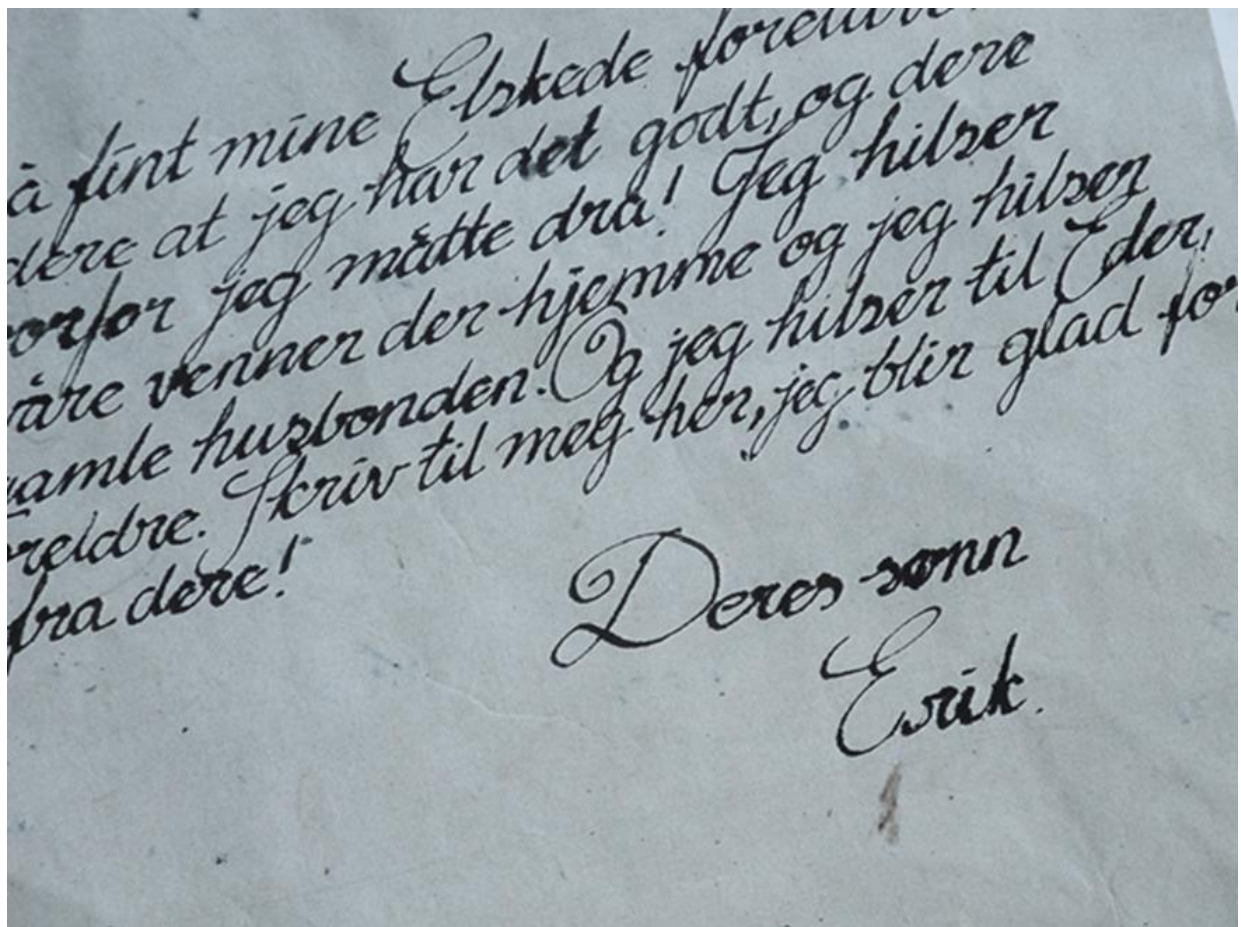 fint mine Elskede
dere at jeg har det godt, og dere
jeg måtte dra! Jeg hilser
venner der hjemme og jeg hilser
husbonden. Og jeg hilser til Eder,
Skriv til meg her, jeg blir glad for
fra dere!
Deres sønn
Erik.